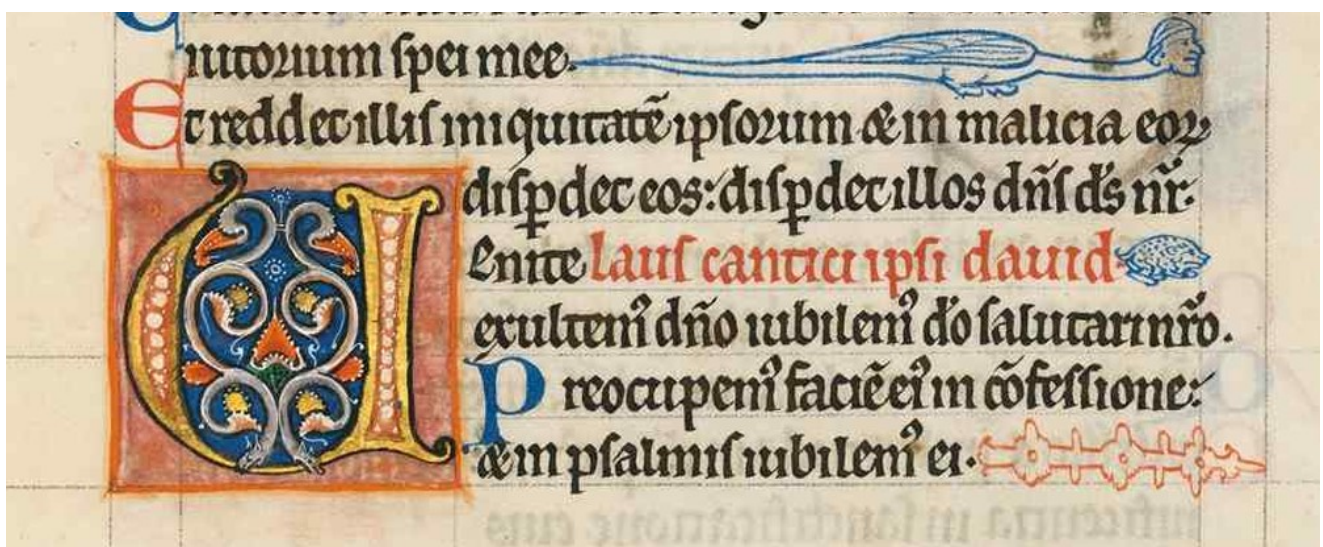 iutorium spei mee.
Et reddet illis iniquitatē ipsorum & in malicia eoꝝ
disꝑdet eos: disꝑdet illos dn̄s ds̄ nr̄.
Venite laus cantici ipsi dauid
exultemꝰ dn̄o iubilemꝰ do̅ salutari nr̄o.
Preocupemꝰ faciē eiꝰ in cōfessione:
& in psalmis iubilemꝰ ei.